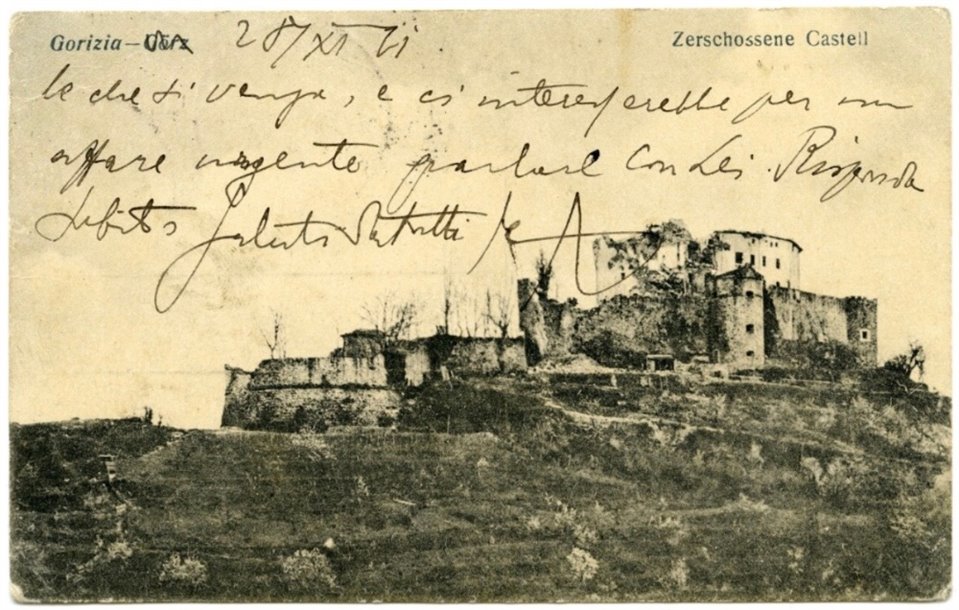 Gorizia – Görz 28/XI 21. Zerschossene Castell
le che si venga, e ci interesserebbe per un
affare urgente parlare con Lei. Risponda
subito